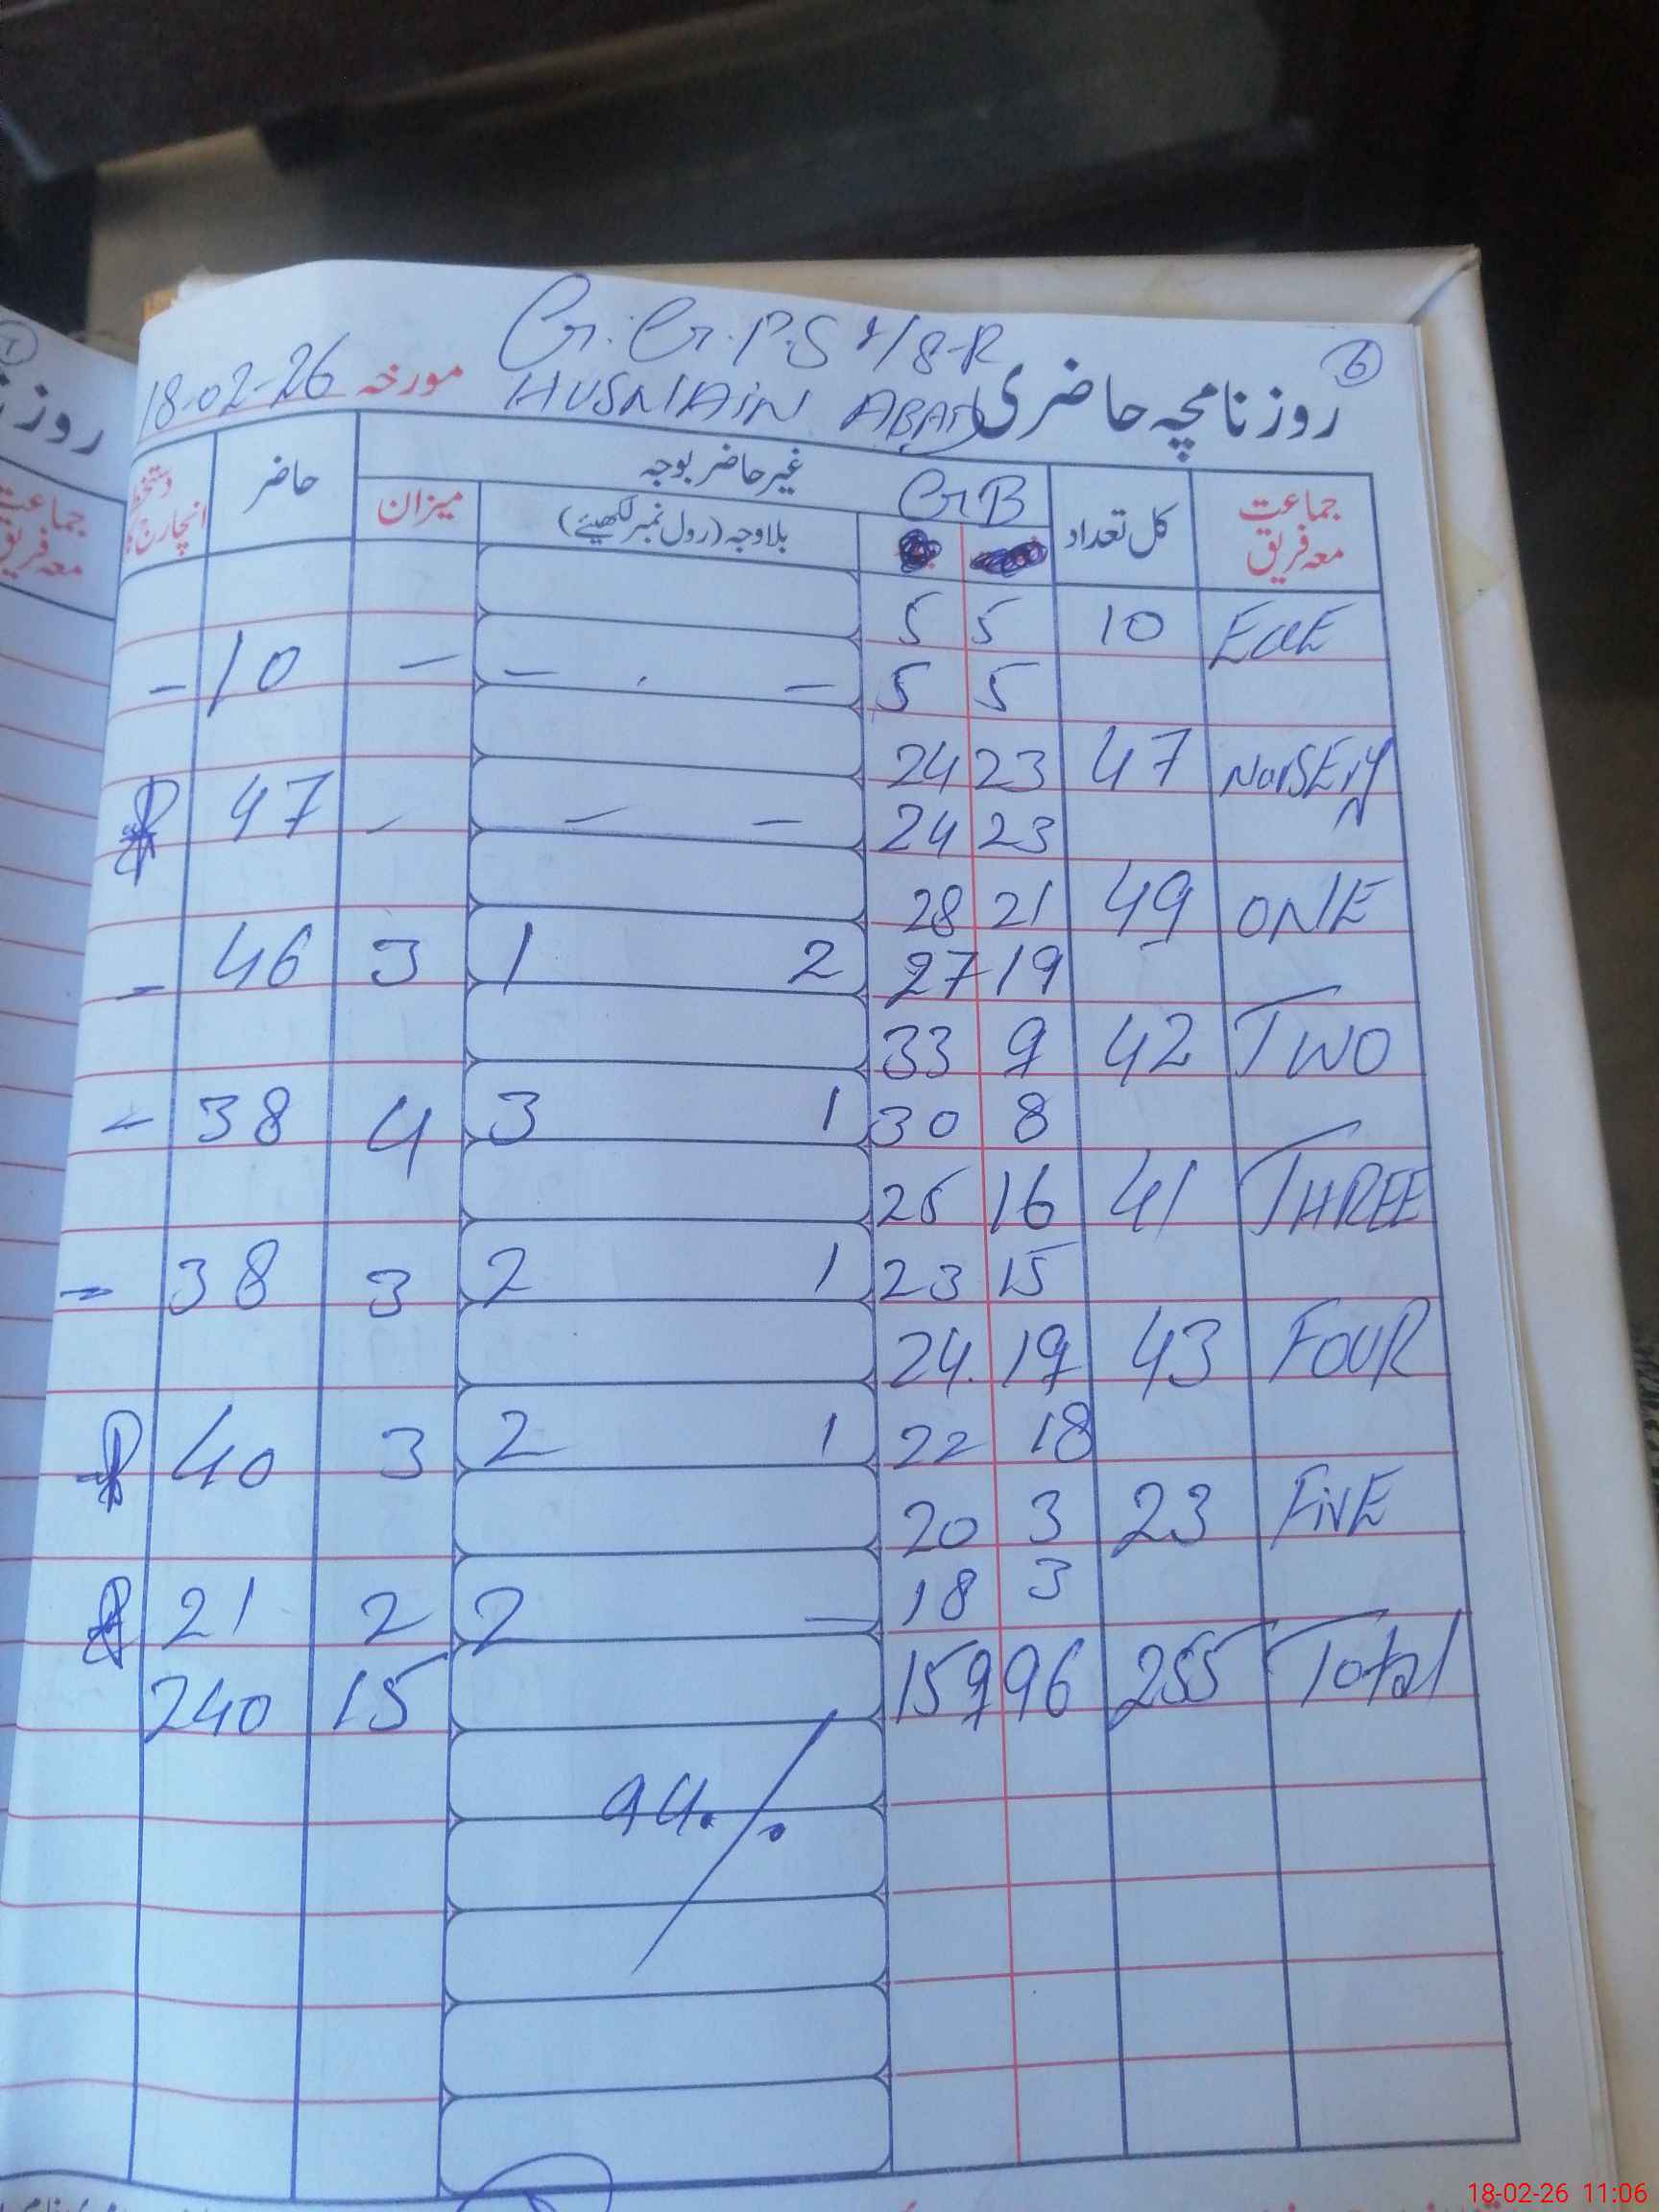 G.G.P.S 4/8-R
6
روزنامچہ حاضری HUSNAIN ABAD مورخہ 18-02-26
جماعت معہ فریق کل تعداد غیر حاضر بوجہ حاضر دستخط انچارج
G B
بلاوجہ (رول نمبر لکھیئے) میزان
EcE 10 5 5
5 5 - . - - 10 -
NurSEry 47 23 24
23 24 - - - 47
ONE 49 21 28
19 27 2 1 3 46 -
TWO 42 9 33
8 30 1 3 4 38 -
THREE 41 16 25
15 23 1 2 3 38 -
FOUR 43 19 24.
18 22 1 2 3 40
FivE 23 3 20
3 18 - 2 2 21
Total 255 96 159 15 240
94.%
روز
جماعت
معہ فریق
18-02-26 11:06